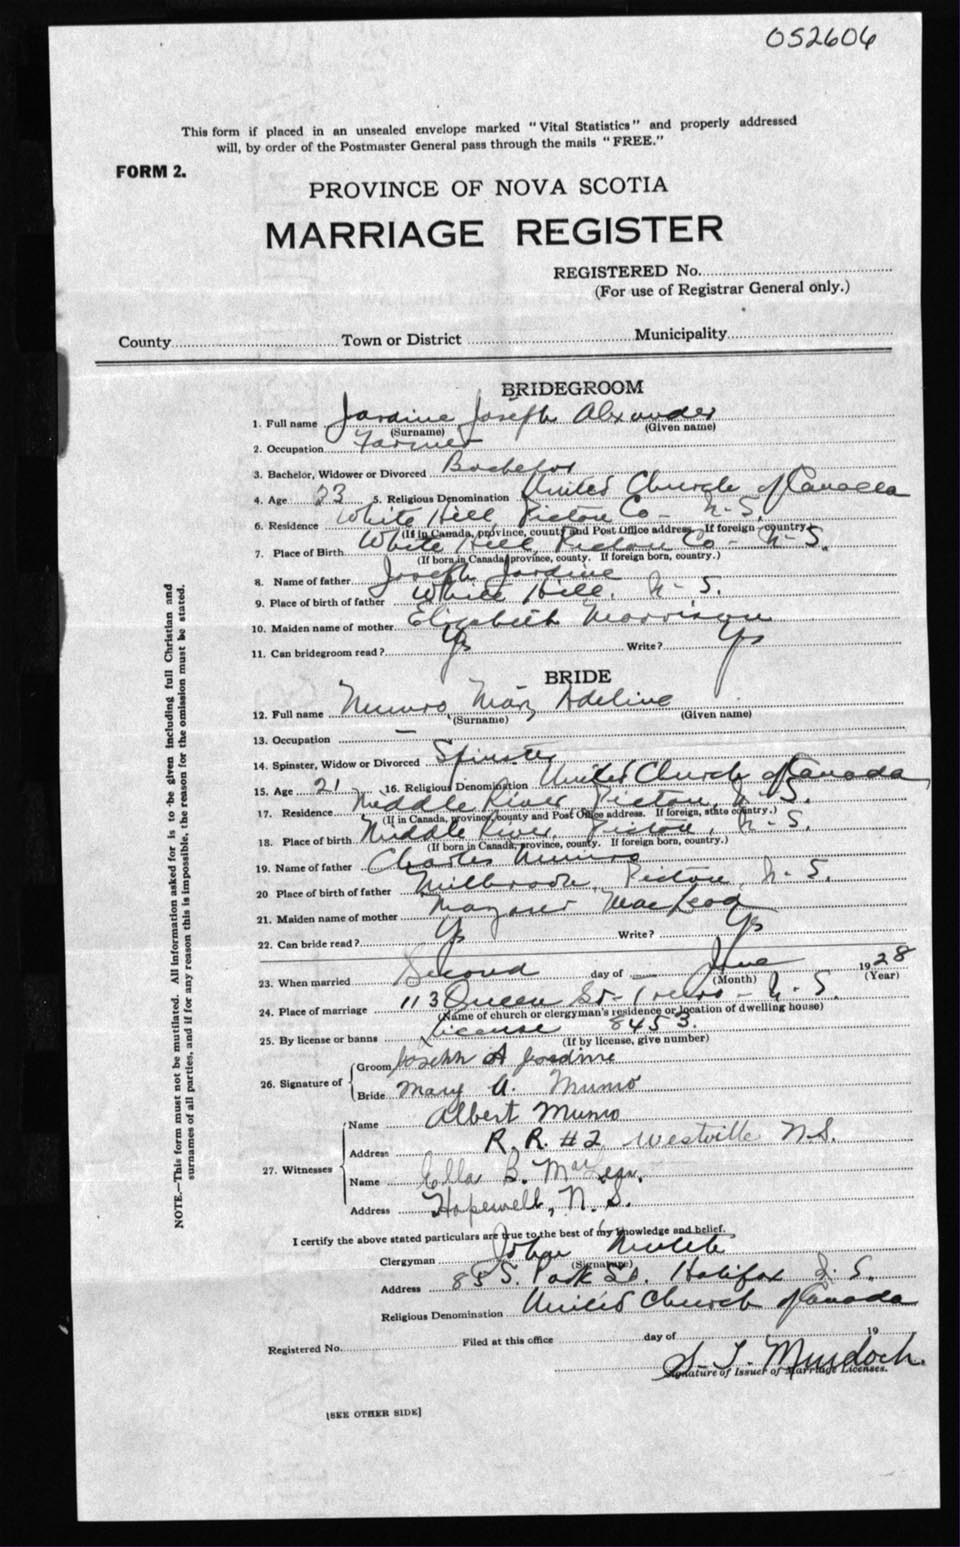 052606
This form if placed in an unsealed envelope marked "Vital Statistics" and properly addressed
will, by order of the Postmaster General pass through the mails "FREE."
FORM 2.
PROVINCE OF NOVA SCOTIA
MARRIAGE REGISTER
REGISTERED No.
(For use of Registrar General only.)
County Town or District Municipality
BRIDEGROOM
1. Full name Jardine Joseph Alexander
(Surname) (Given name)
2. Occupation Farmer
3. Bachelor, Widower or Divorced Bachelor
4. Age 23 5. Religious Denomination United Church of Canada
6. Residence White Hill, Pictou Co - N-S.
(If in Canada, province, county and Post Office address. If foreign country)
7. Place of Birth White Hill, Pictou Co - N-S.
(If born in Canada, province, county. If foreign born, country.)
8. Name of father Joseph Jardine
9. Place of birth of father White Hill, N-S.
10. Maiden name of mother Elizabeth Morrison
11. Can bridegroom read? Yes Write? Yes
BRIDE
12. Full name Munro Mary Adeline
(Surname) (Given name)
13. Occupation —
14. Spinster, Widow or Divorced Spinster
15. Age 21 16. Religious Denomination United Church of Canada
17. Residence Middle River, Pictou, N-S.
(If in Canada, province, county and Post Office address. If foreign, state country.)
18. Place of birth Middle River, Pictou, N-S.
(If born in Canada, province, county. If foreign born, country.)
19. Name of father Charles Munro
20 Place of birth of father Millbrook, Pictou, N-S.
21. Maiden name of mother Margaret MacLeod
22. Can bride read? Yes Write? Yes
23. When married Second day of June 1928
(Month) (Year)
24. Place of marriage 113 Queen St - Truro - N-S.
(Name of church or clergyman's residence or location of dwelling house)
25. By license or banns License 8453.
(If by license, give number)
26. Signature of Groom Joseph A Jardine
Bride Mary A. Munro
27. Witnesses Name Albert Munro
Address R.R. #2 Westville N.S.
Name Ella B.
Address Hopewell, N.S.
I certify the above stated particulars are true to the best of my knowledge and belief.
Clergyman John
(Signature)
Address 85 S. Park St. Halifax N.S.
Religious Denomination United Church of Canada
Registered No. Filed at this office day of 19
S. T. Murdoch.
Signature of Issuer of Marriage Licenses.
[SEE OTHER SIDE]
NOTE.—This form must not be mutilated. All information asked for is to be given including full Christian and
surnames of all parties, and if for any reason this is impossible, the reason for the omission must be stated.